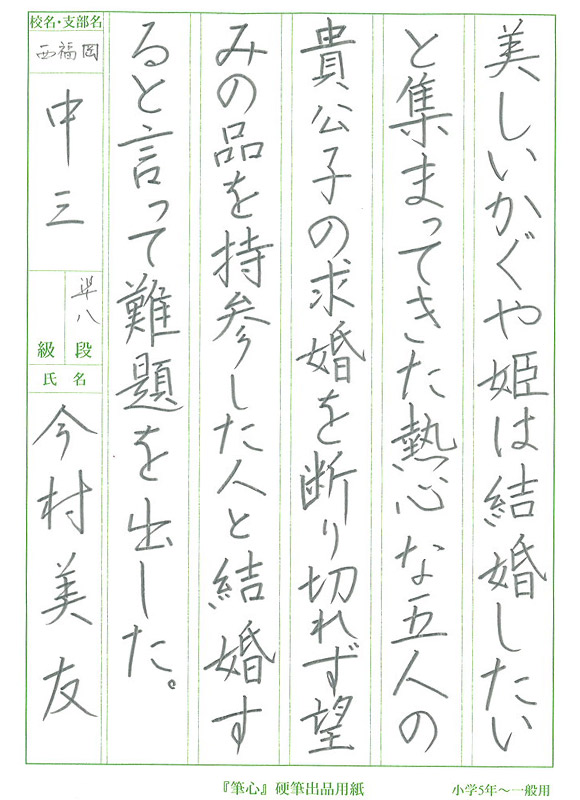 美しいかぐや姫は結婚したい
と集まってきた熱心な五人の
貴公子の求婚を断り切れず望
みの品を持参した人と結婚す
ると言って難題を出した。
校名・支部名
西福岡
中三
準八
段
級
氏名
今村美友
『筆心』硬筆出品用紙
小学5年〜一般用